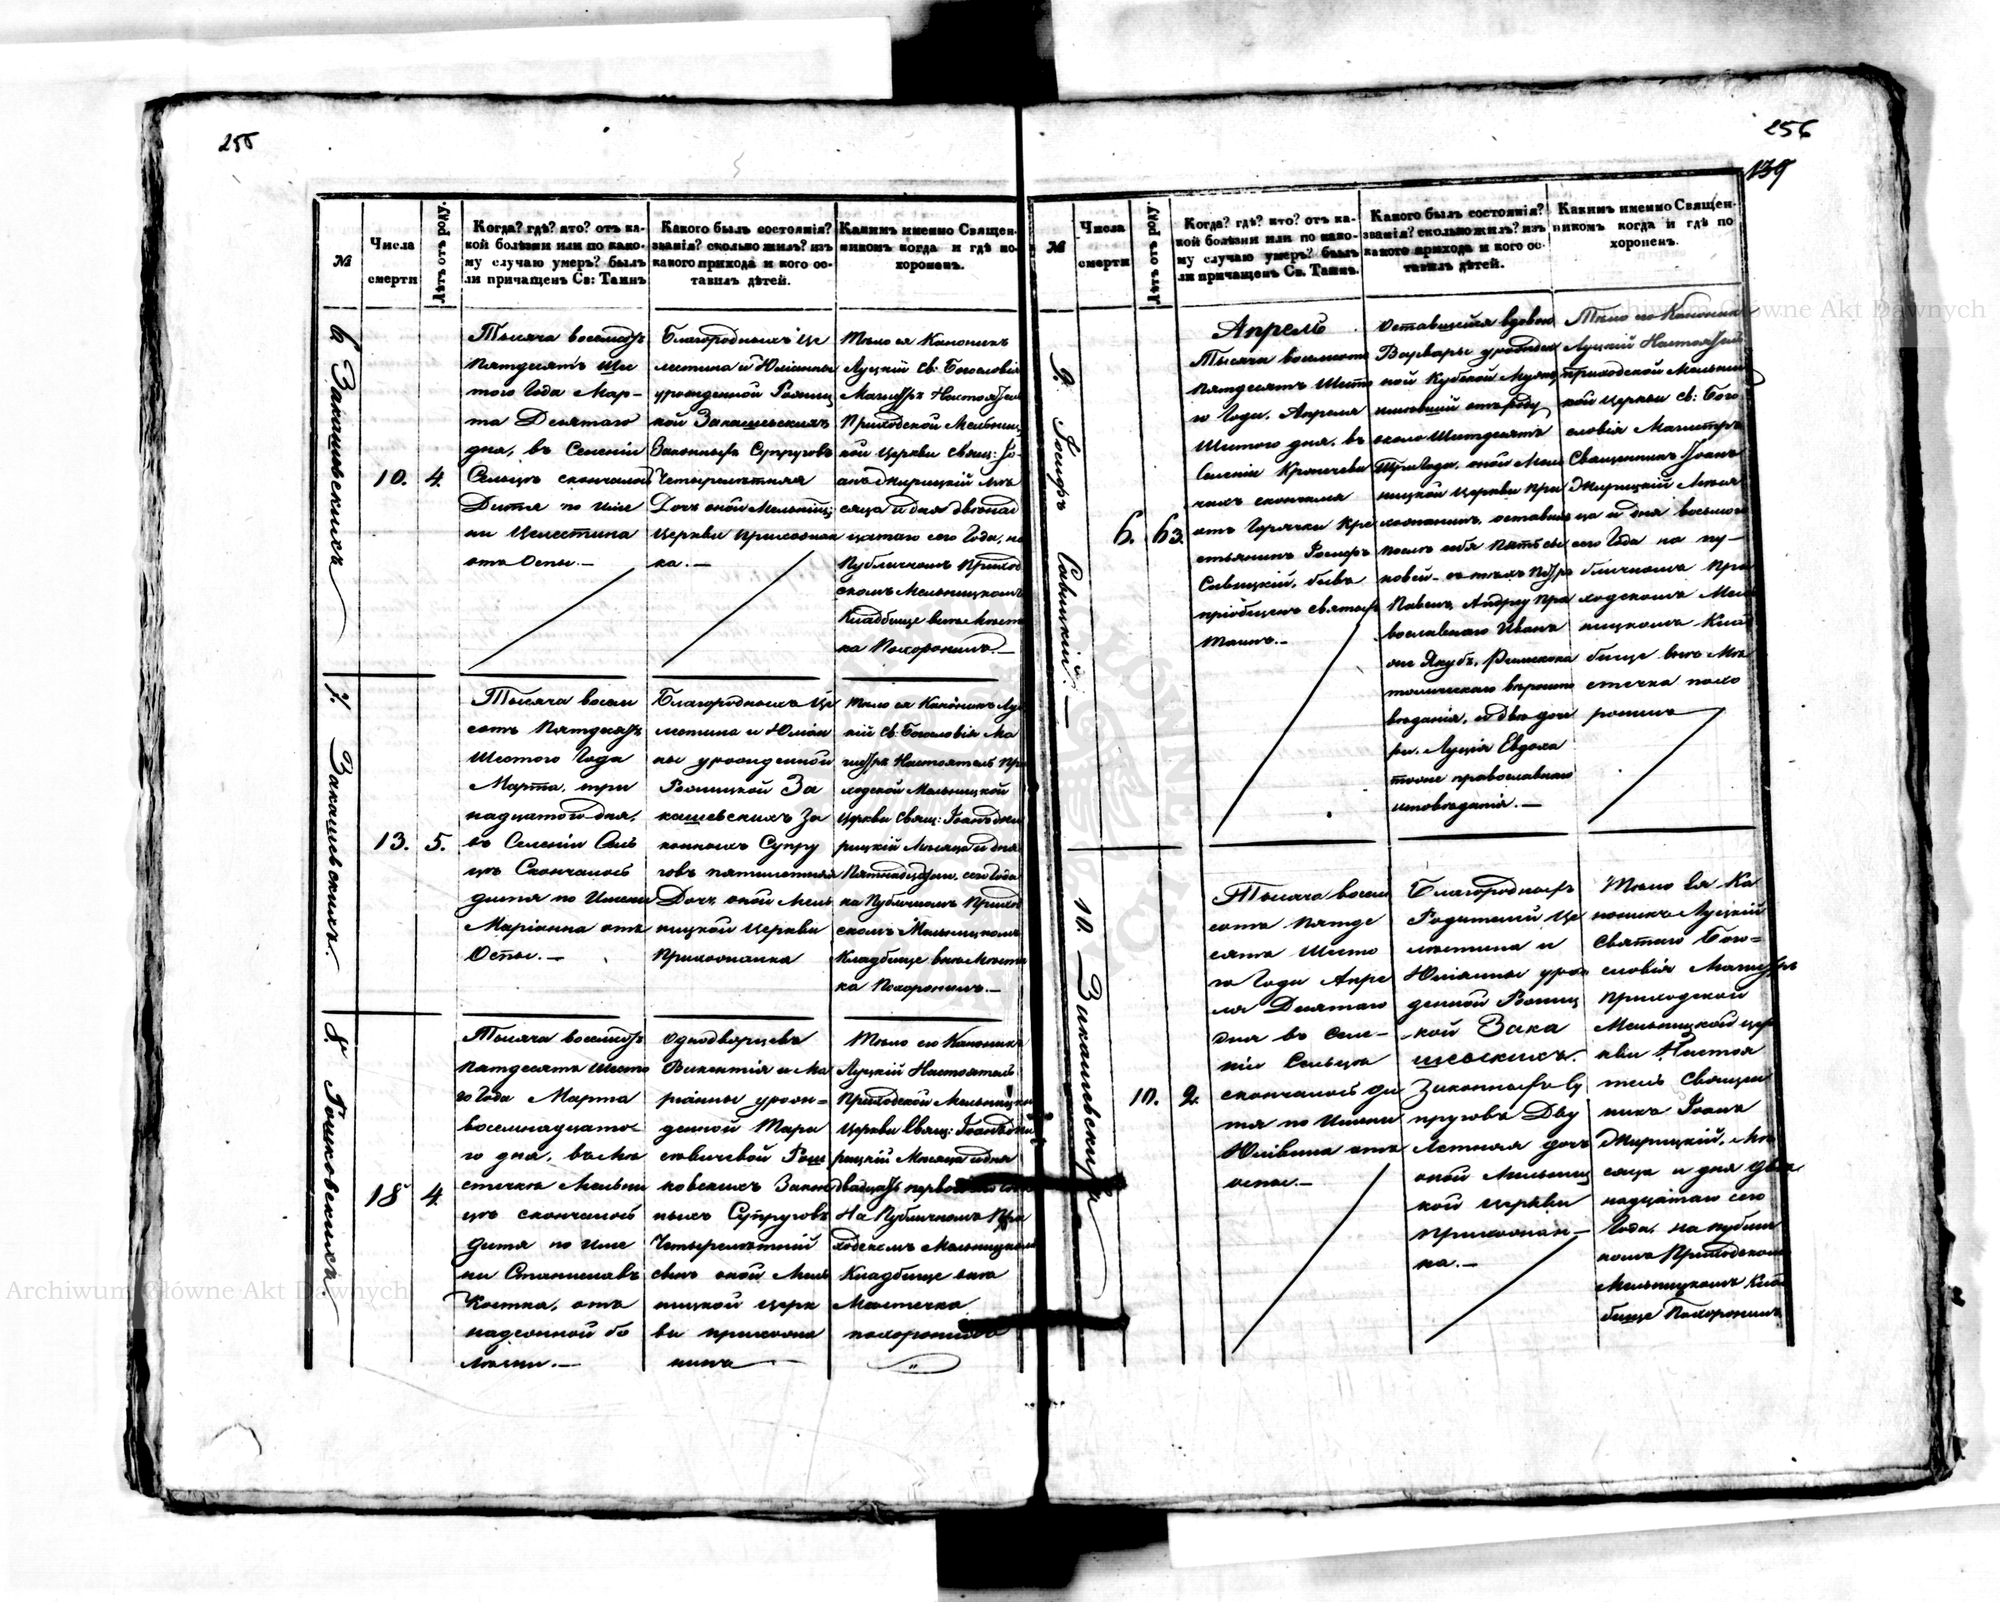 255
№
Числа
смерти
Лѣтъ отъ роду.
Когда? гдѣ? кто? отъ ка-
кой болѣзни или по како-
му случаю умеръ? былъ
ли причащенъ Св: Таинъ
Какого былъ состоянія?
званія? сколько жилъ? изъ
какого прихода и кого ос-
тавилъ дѣтей.
Какимъ именно Священ-
никомъ когда и гдѣ по-
хороненъ.
6 Закашевскихъ
10.
4.
Тысяча восемьсотъ
пятдесятъ Шес
того Года Мар-
та Десятаго
дня, въ Селеніи
Сельцѣ скончалось
Дитя по име
ни Целестина
отъ Оспы.—
Благородныхъ Це
лестина и Юліанны
урожденной Росниц
кой Закашевскихъ
Законныхъ Супруговъ
Четырелѣтняя
Дочь оной Мельниц
церкви прихожан
ка.—
Тѣло ея Каноникъ
Луцкій Св: Богословія
Магистръ Настоятель
Приходской Мельниц
кой Церкви Свящ: Іо-
аннъ Жирицкій Мѣ
сяца и дня двѣнад
цатаго сего Года, на
Публичномъ Приход
скомъ Мельницкомъ
Кладбище внѣ Мѣсте
ка Похоронилъ.—
7. Закашевскихъ.
13.
5.
Тысяча восем
сотъ Пятдесятъ
Шестого Года
Марта, три
надцатого дня,
въ Селеніи Сель
цѣ Скончалось
дитя по Имени
Маріанна отъ
Оспы.—
Благородныхъ Це
лестина и Юліан
ны урожденной
Росницкой За
кашевскихъ За
конныхъ Супру
говъ пятилетняя
Дочь оной Мель
ницкой Церкви
Прихожанка
Тѣло ея Каноникъ Луц
кій Св: Богословія Ма
гистръ Настоятель При
ходской Мельницкой
Церкви Свящ: Іоаннъ Жи
рицкій Мѣсяца и дня
Пятнадцатаго, сего Года
на Публичномъ Приход
скомъ Мельницкомъ
Кладбище внѣ Мѣсте
ка Похоронилъ.—
8. Рошковскихъ.
18
4.
Тысяча восемьсотъ
пятдесятъ Шесто
го Года Марта
восемнадцато
го дня, въ Мѣ
стечкѣ Мельни
цѣ скончалось
дитя по име
ни Станиславъ
Костка, отъ
надсонной бо
лѣзни.—
Однодворцевъ
Викентія и Ма
ріанны урож=
денной Мари
севичевой Рош
ковскихъ Закон
ныхъ Супруговъ
Четырелѣтній
сынъ оной Мель
ницкой церк
ви прихожа
нинъ—
Тѣло его Каноникъ
Луцкій Настоятель
Приходской Мельницкой
Церкви Свящ: Іоаннъ Жи
рицкій Мѣсяца и дня
двадцать первого сего Года
На Публичномъ При
ходскомъ Мельницкомъ
Кладбище внѣ
Мѣстечка
похоронилъ
256
139
№
Числа
смерти
Лѣтъ отъ роду.
Когда? гдѣ? кто? отъ ка-
кой болѣзни или по како-
му случаю умеръ? былъ
ли причащенъ Св. Таинъ.
Какого былъ состоянія?
званія? сколько жилъ? изъ
какого прихода и кого ос-
тавилъ дѣтей.
Какимъ именно Священ-
никомъ когда и гдѣ по
хороненъ.
9. Іосифъ Савицкій.—
6.
63.
Апрель
Тысяча восемсотъ
пятдесятъ Шесто
го Года. Апреля
Шестого дня, въ
Селеніи
скончался
отъ Горячки Кре
стьянинъ Іосифъ
Савицкій, бывъ
пріобщенъ Святыхъ
Таинъ.—
Оставшейся вдовою
Варвары урожден
ной Кубской Мужъ
имѣвшій отъ роду
около Шестдесятъ
Три Года, оной Мель
ницкой Церкви При
хожанинъ, оставивъ
после себя пять сы
новей— то есть Петръ
Павелъ, Андрей Пра
вославнаго Иванъ
они Якубъ, Римско ка
толическаго вѣроиспо
вѣданія, и двѣ доче
ри, Луція Евдоха
тоже православнаго
исповѣданія.—
Тѣло его Каноникъ
Луцкій Настоятель
приходской Мельниц
кой Церкви Св: Бого
словія Магистръ
Священникъ Іоаннъ
Жирицкій Мѣся
ца и дня восьмого
сего Года на пу—
бличномъ При
ходскомъ Мель
ницкомъ Клад
бище внѣ Мѣ
стечка похо
ронилъ
10. Закашевскихъ
10.
2.
Тысяча восем
сотъ Пятде
сятъ Шесто
го Года Апре
ля Десятаго
дня въ Селе—
ніи Сельцѣ
скончалось ди
тя по Имени
Юліанна отъ
оспы.—
Благородныхъ
Родителей Це
лестина и
Юліанны урож
денной Росниц
кой Зака
шевскихъ.
Законныхъ Су
пруговъ Дву
Лѣтняя дочь
оной Мельниц
кой церкви
прихожан—
ка.—
Тѣло Ея Ка
ноникъ Луцкій
Святаго Бого=
словія Магистръ
Приходской
Мельницкой цер
кви Настоя
тель Священ
никъ Іоаннъ
Жирицкій, Мѣ
сяца и дня двѣ
надцатаго сего
Года, на публич
номъ Приходскомъ
Мельницкомъ Клад
бище Похоронилъ
Archiwum Główne Akt Dawnych
Archiwum Główne Akt Dawnych